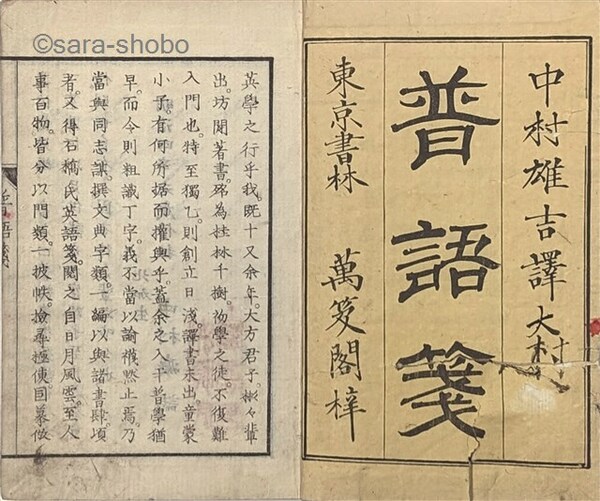 ©sara-shobo
中村雄吉譯
普語箋
東京書林 萬笈閣梓
英學之行乎我。既十又余年。大方君子。彬々輩
出。坊間著書。殆為桂林千樹。初學之徒。不復難
入門也。特至獨乙。則創立日淺。譯書未出。童蒙
小子。有何所据而權輿乎。蓋余之入于普學猶
早。而今則粗識丁字。義不當以諭襪黙止焉。乃
當與同志謀撰文典字類。一編以與諸書肆。頃
者。又得石橋氏英語箋。閲之自日月風雲。至人
事百物。皆分以門類。一披帙。撿尋極便。因摹倣
普語箋